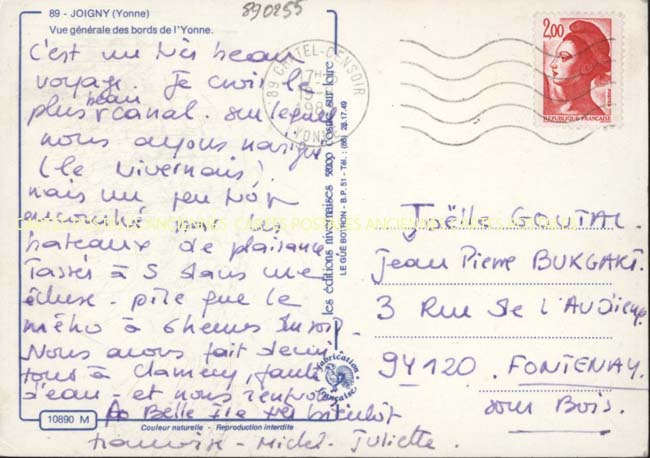 890255
89 - JOIGNY (Yonne)
Vue générale des bords de l'Yonne.
C'est un très beau
voyage. Je crois le
plus beau canal sur lequel
nous ayons navigué
(le Nivernais)
mais un peu trop
par les
bateaux de plaisance
Tassés à 5 dans une
écluse. pire que le
métro à 6 heures du soir.
Nous avons fait demi
tour à Clamecy, faute
d'eau - et nous rentrons
très bientôt
Michel - Juliette.
10890 M
Couleur naturelle - Reproduction interdite
les éditions nivernaises
LE GUÉ BOTRON - B.P. 51 - Tél. : (86) 28-17-49
Fabrication Française
89 CHATEL-CENSOIR
YONNE
2,00
REPUBLIQUE FRANCAISE
CARTES POSTALES ANCIENNES
Joëlle GOUTAL.
Jean Pierre
3 Rue de l'Audience
94120. FONTENAY
sous Bois.